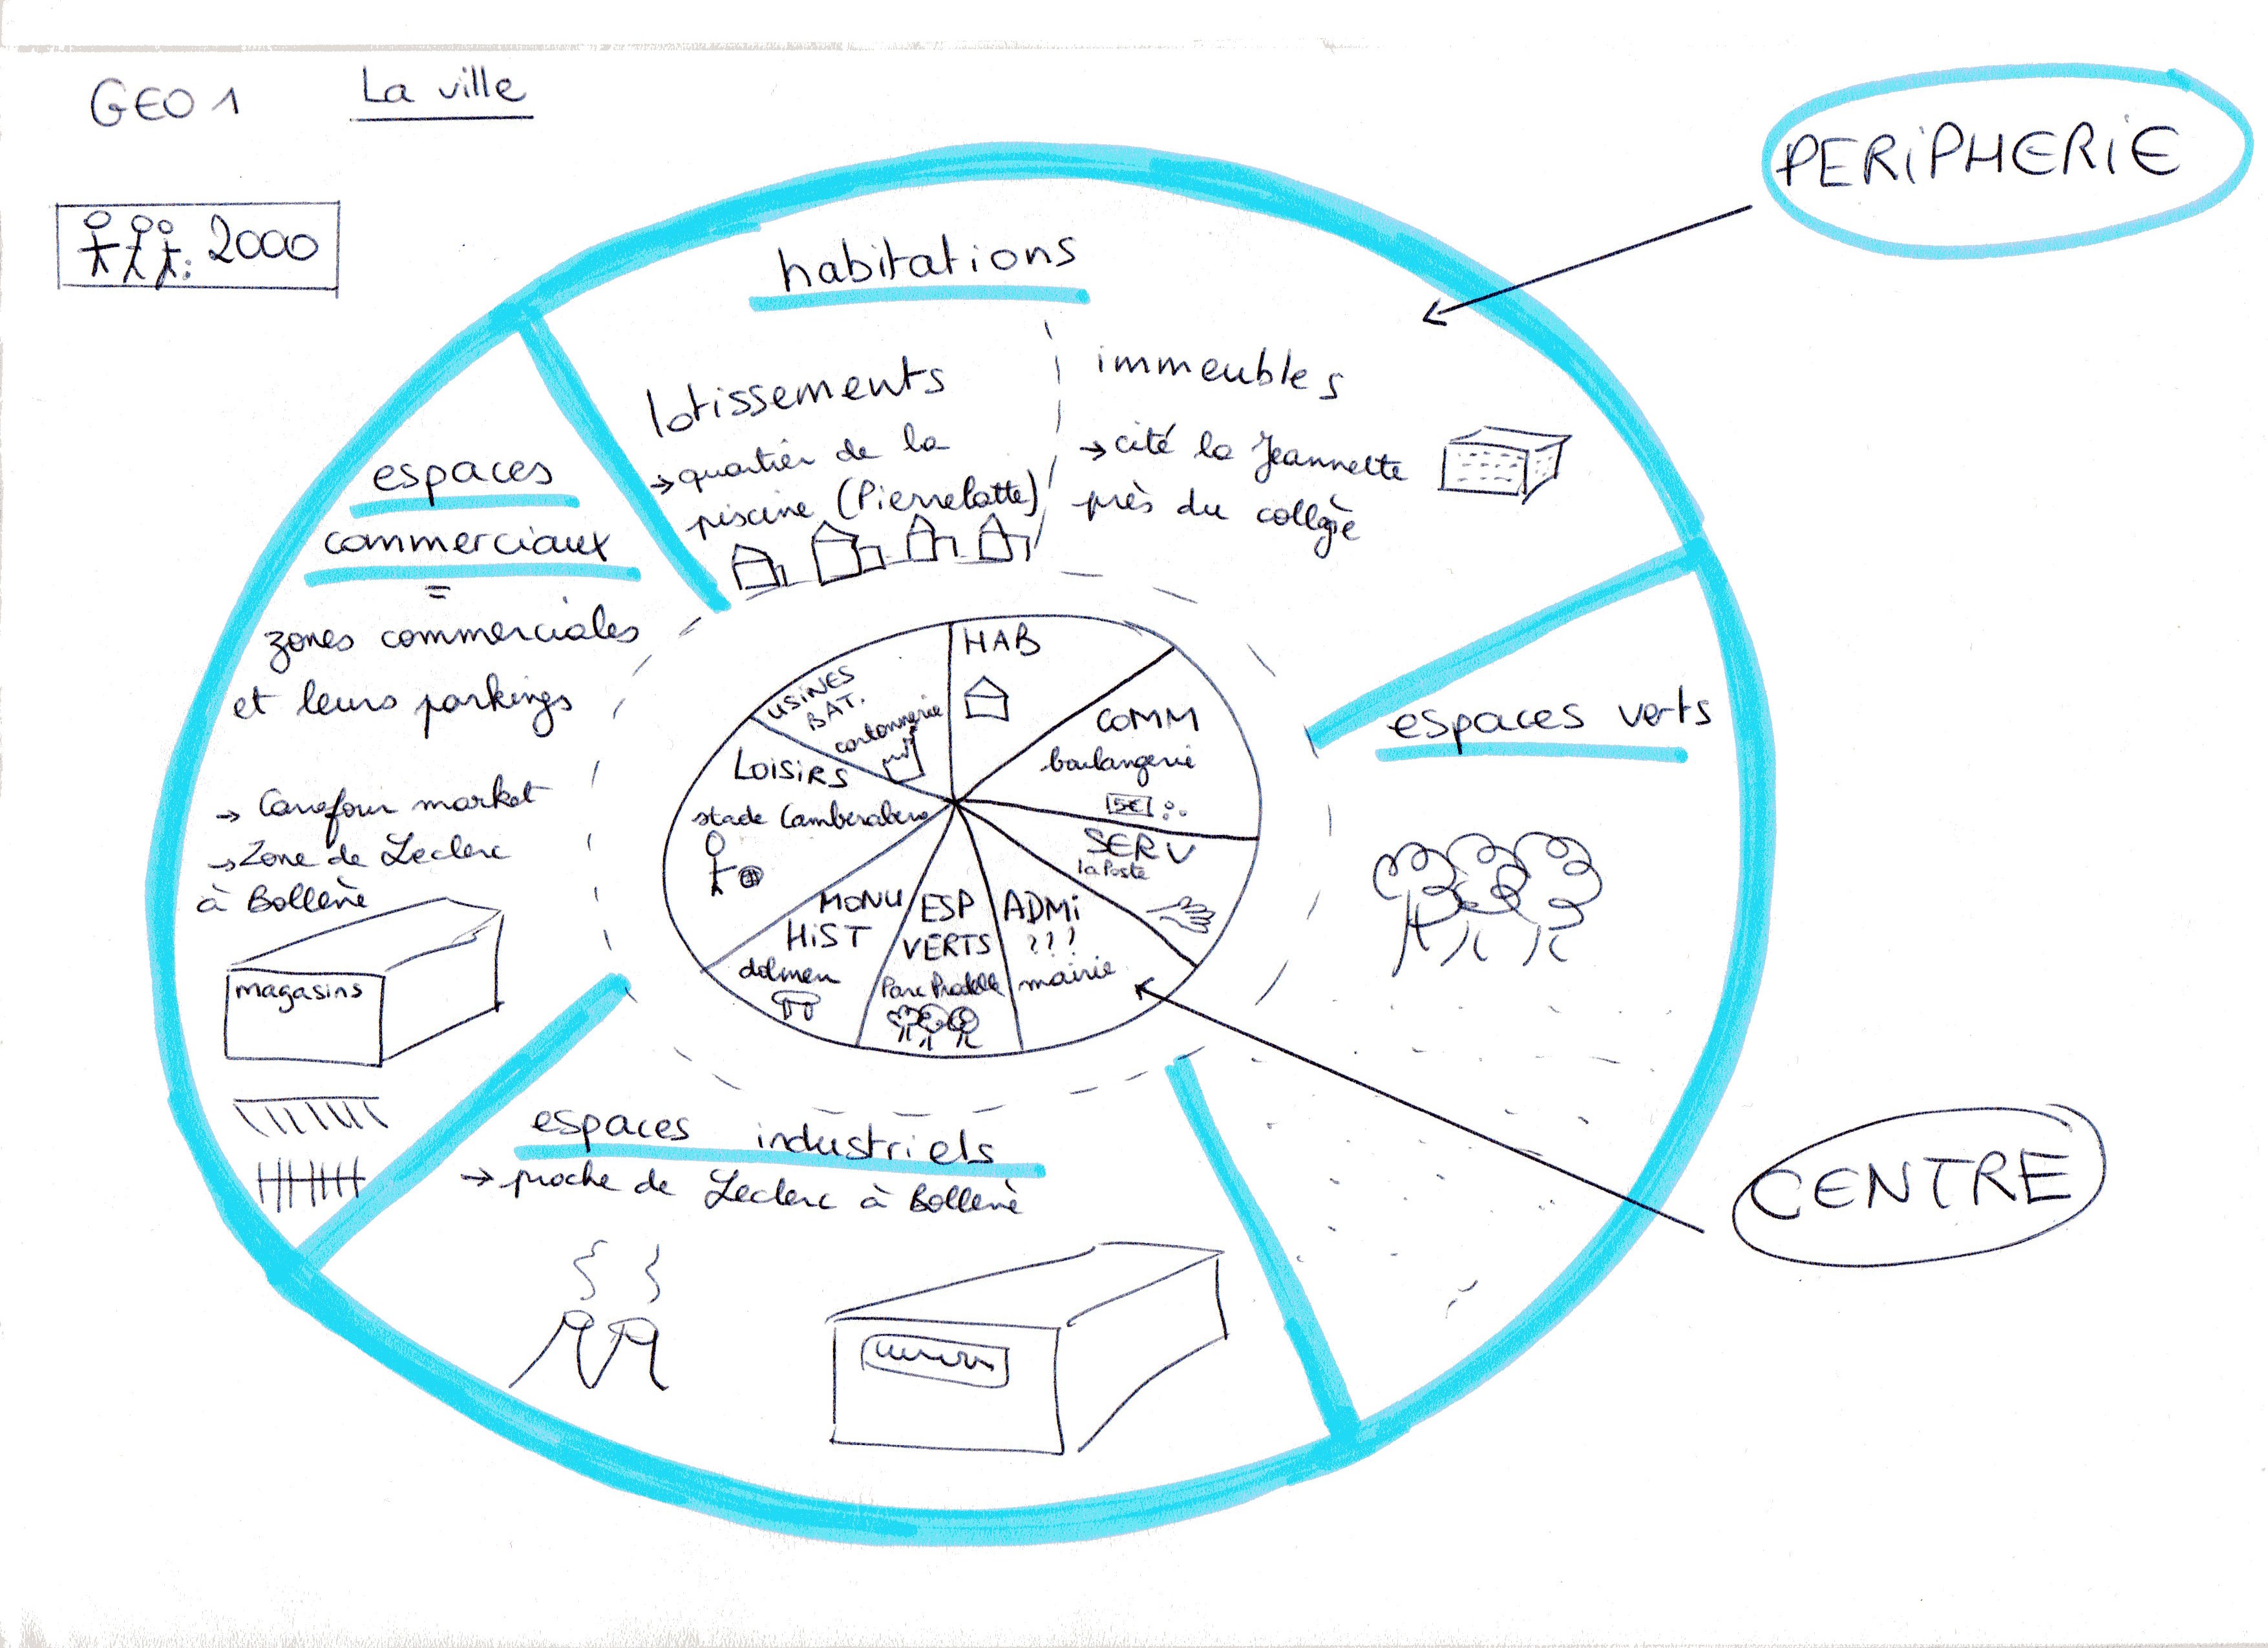 GEO 1
La ville
: 2000
PERiPHERiE
habitations
lotissements
→ quartier de la
piscine (Pierrelatte)
immeubles
→ cité la Jeannette
près du collège
espaces
commerciaux
=
zones commerciales
et leurs parkings
→ Carrefour market
→ Zone de Leclerc
à Bollène
magasins
espaces verts
HAB
COMM
boulangerie
5€
SERV
la Poste
ADMi
???
mairie
ESP
VERTS
Parc
MONU
HiST
dolmen
LOiSiRS
stade Camberabero
USiNES
BAT.
cartonnerie
espaces industriels
→ proche de Leclerc à Bollène
CENTRE